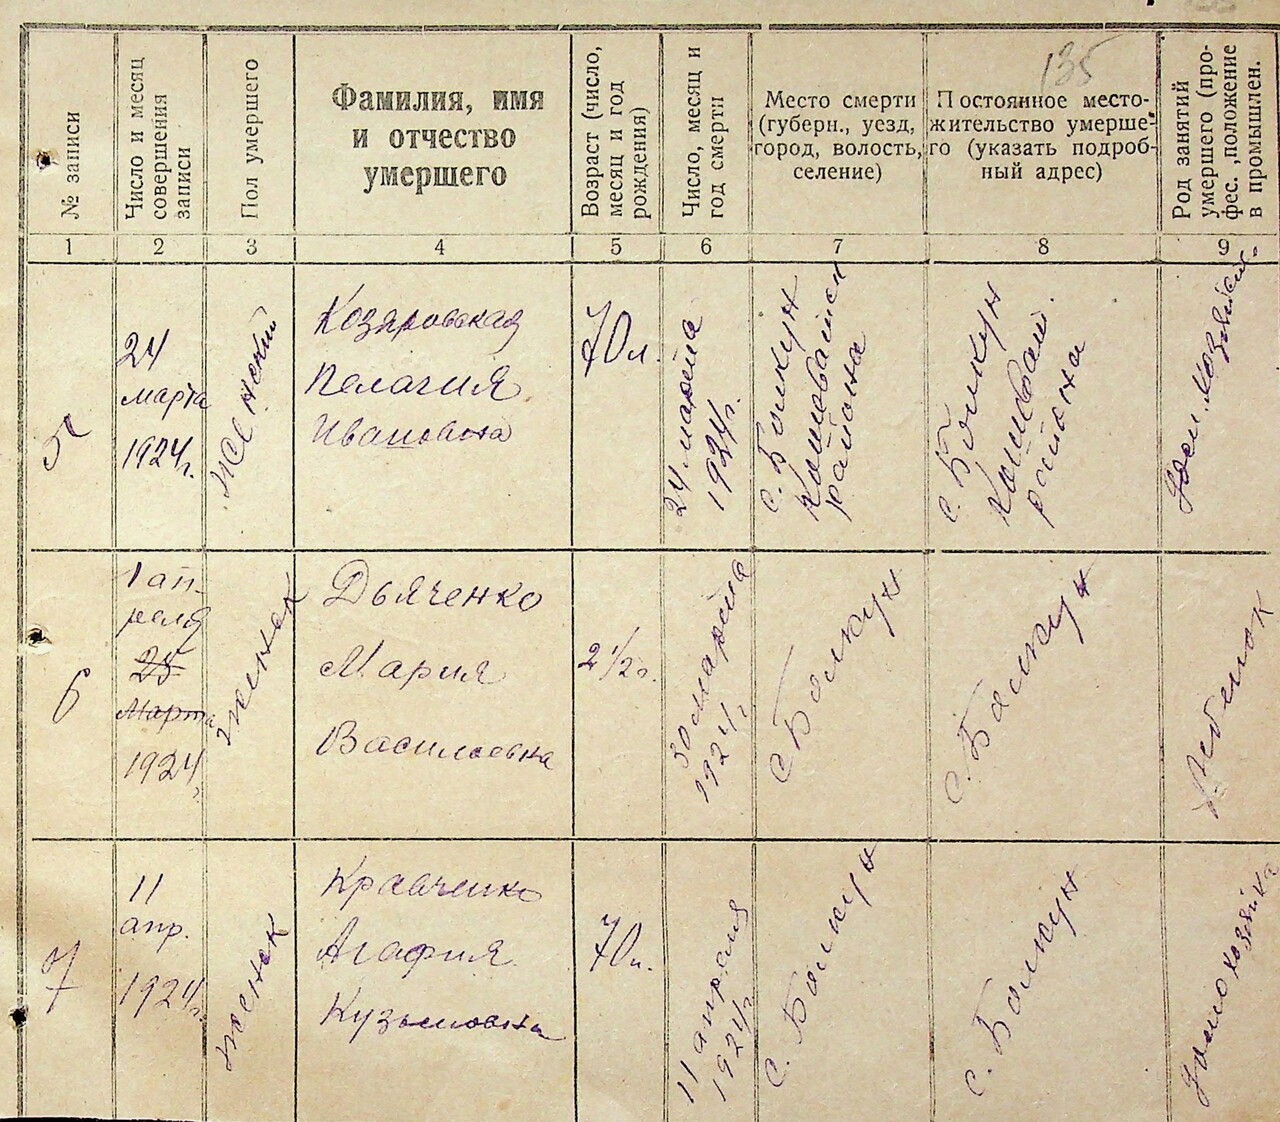 135
№ записи
Число и месяц
совершения
записи
Пол умершего
Фамилия, имя
и отчество
умершего
Возраст (число,
месяц и год
рождения)
Число, месяц и
год смерти
Место смерти
(губерн., уезд,
город, волость,
селение)
Постоянное место-
жительство умерше-
го (указать подроб-
ный адрес)
Род занятий
умершего (про-
фес., положение
в промышлен.
1
2
3
4
5
6
7
8
9
5
24
марта
1924 г.
Женский
Козяровская
Пелагия
Ивановна
70 л.
24 марта
1924 г.
с. Болкун
района
с. Болкун
района
Дом. хозяйк.
6
1 ап-
реля
25
Марта
1924 г.
женск
Дьяченко
Мария
Васильевна
2 1/2 г.
30 марта
1924 г.
с. Болкун
с. Болкун
Ребенок
7
11
апр.
1924 г.
женск
Кравченко
Агафия
Кузьмовна
70 л.
11 апреля
1924 г.
с. Болкун
с. Болкун
Домохозяйка